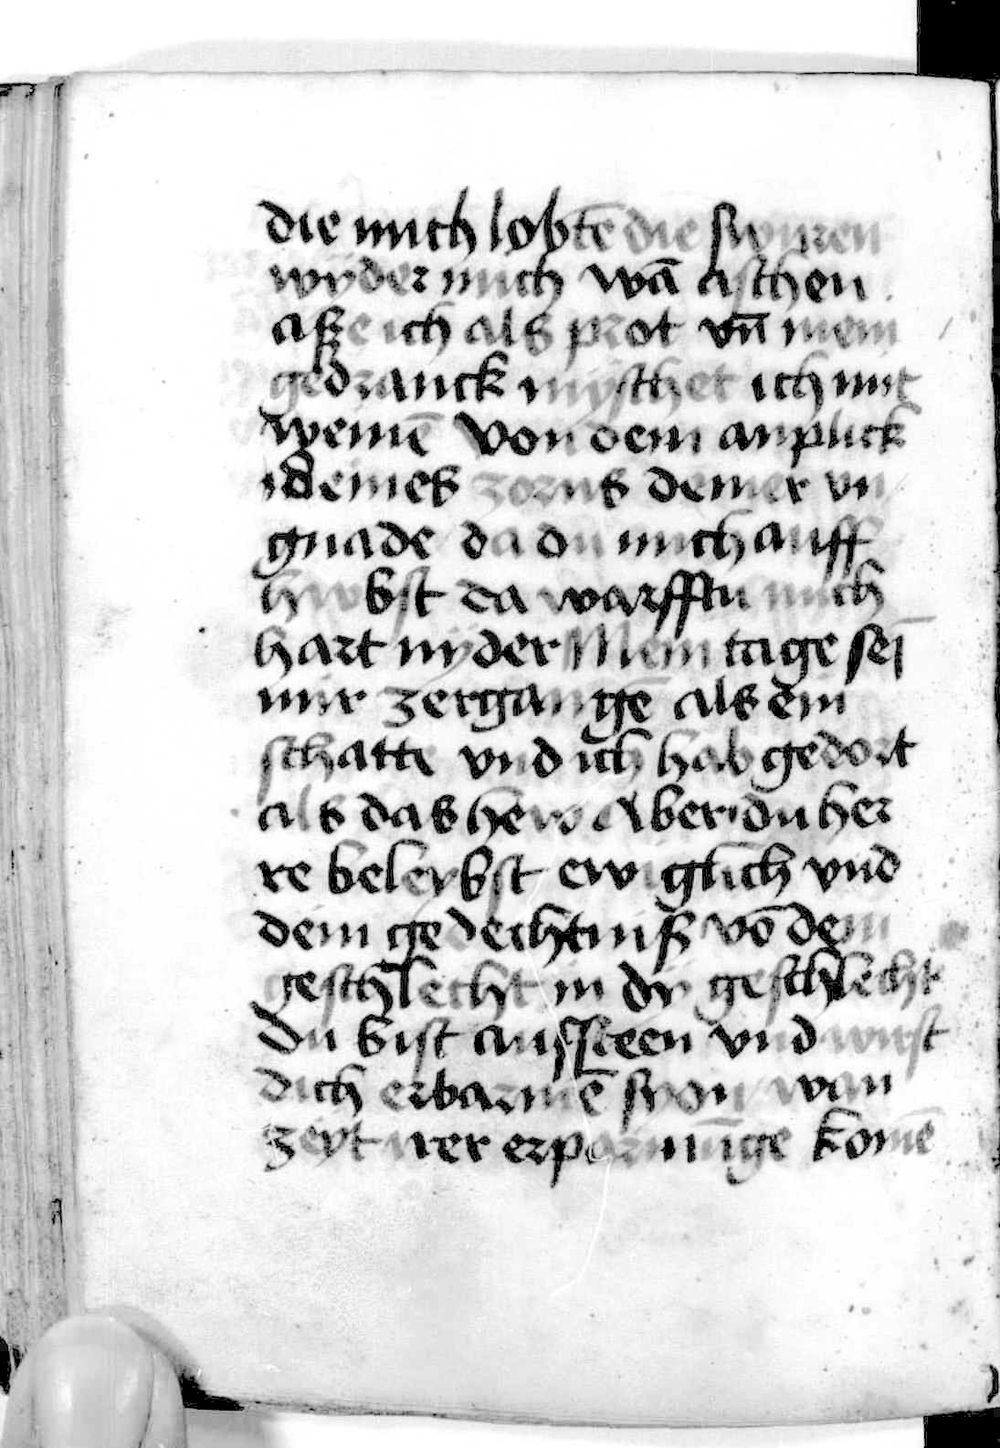 die mich lobtē die swuren
wyder mich wā aschen
aße ich als prot vn̄ mein
gedranck myschet ich mit
weinē Von dem anplick
deines zorns deiner vn
gnade da du mich auff
hubst da warfftu mich
hart nyder Mein tage sei
mir zergangē als ein
schatte vnd ich hab gedort
als das hew Aber du her
re beleybst ewiglich vnd
dein gedechtniß vō dem
geschlecht in dy geschlecht
Du bist aufsteen vnd wirst
dich erbarmē syon wan
zeyt irer erparmūge komē